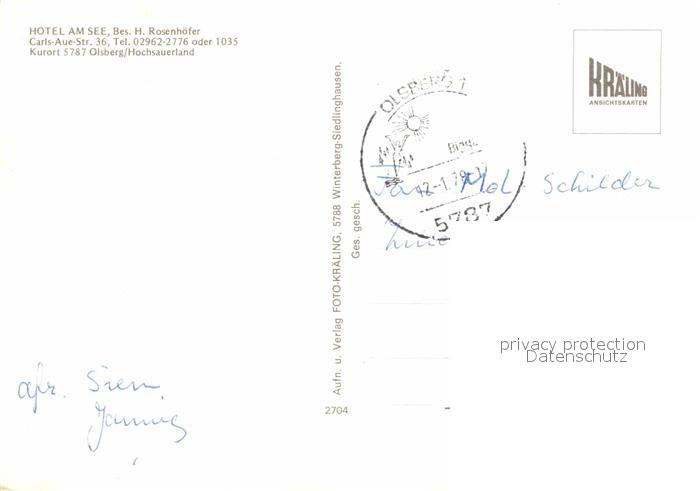 HOTEL AM SEE, Bes. H. Rosenhöfer
Carls-Aue-Str. 36, Tel. 02962-2776 oder 1035
Kurort 5787 Olsberg/Hochsauerland
KRÄLING
ANSICHTSKARTEN
OLSBERG 1
12-1.79-17
5787
Schilder
Aufn. u. Verlag FOTO-KRÄLING, 5788 Winterberg-Siedlinghausen.
Ges. gesch.
privacy protection
Datenschutz
afz.
2704